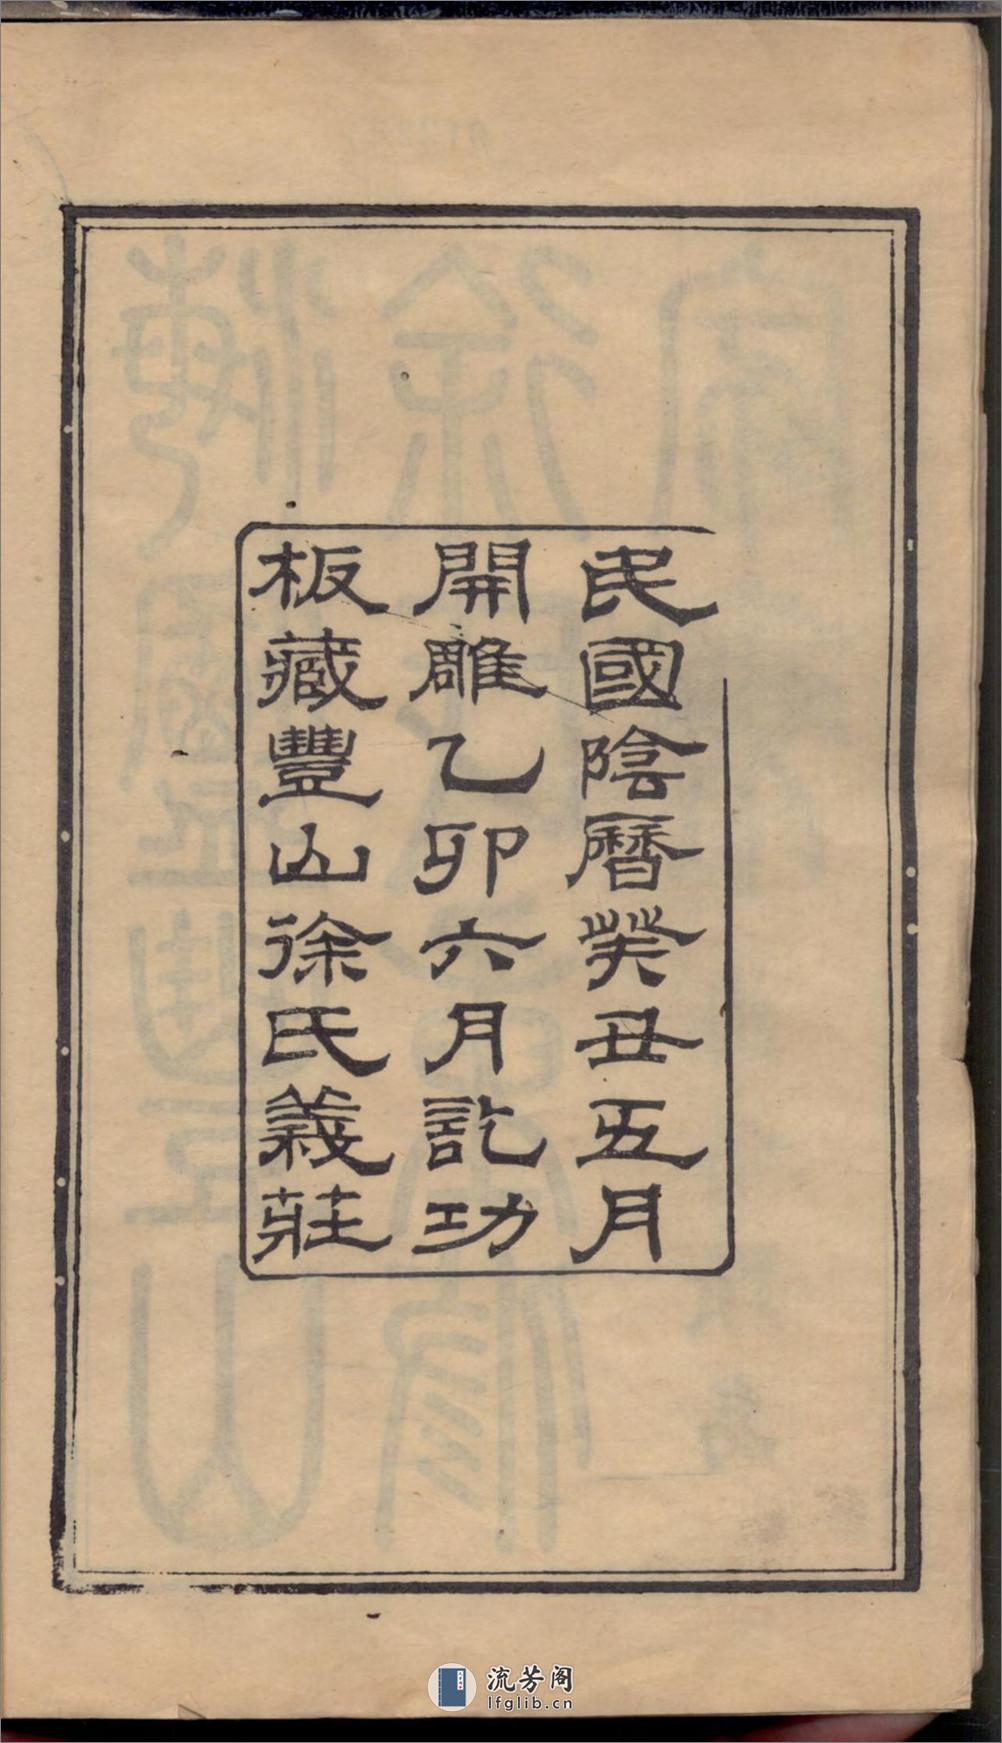 民國陰曆癸丑五月
開雕乙卯六月訖功
板藏豐山徐氏義莊
流芳阁
lfglib.cn